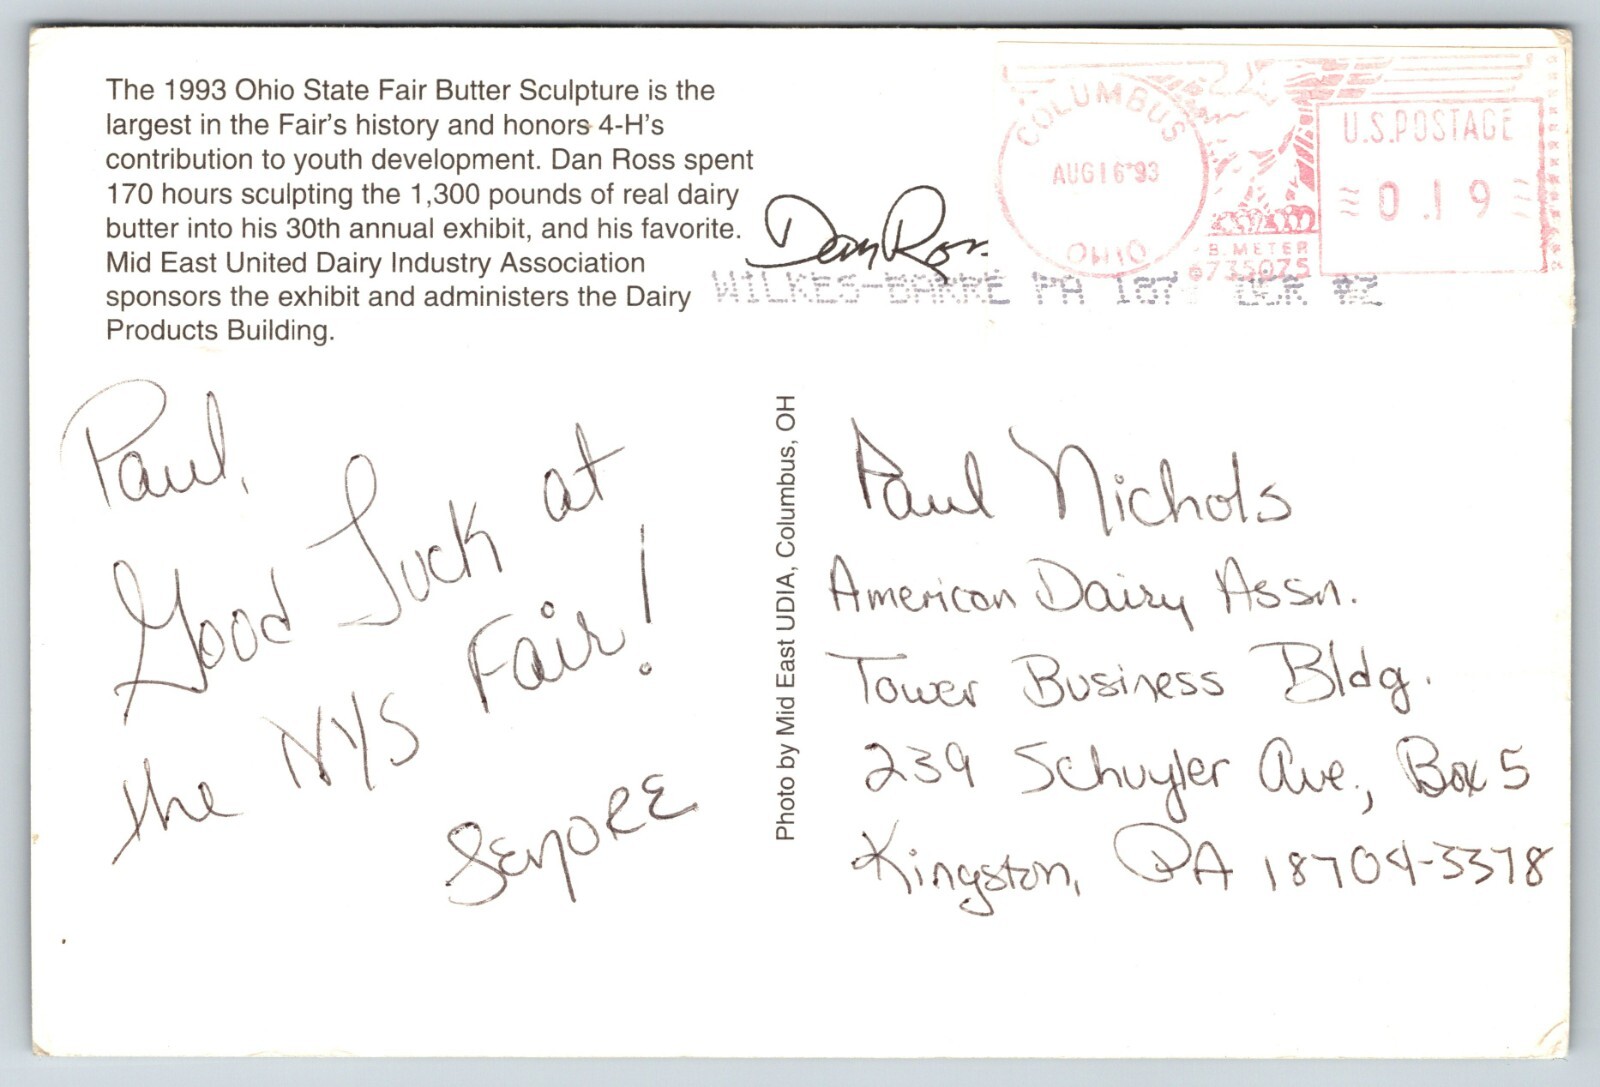 The 1993 Ohio State Fair Butter Sculpture is the
largest in the Fair's history and honors 4-H's
contribution to youth development. Dan Ross spent
170 hours sculpting the 1,300 pounds of real dairy
butter into his 30th annual exhibit, and his favorite.
Mid East United Dairy Industry Association
sponsors the exhibit and administers the Dairy
Products Building.
Dan Ross
COLUMBUS
AUG 16 '93
OHIO
U.S. POSTAGE
0.19
B. METER
735075
WILKES-BARRE PA 187
#2
Paul,
Good Luck at
the NYS Fair!
Photo by Mid East UDIA, Columbus, OH
Paul Nichols
American Dairy Assn.
Tower Business Bldg.
239 Schuyler Ave., Box 5
Kingston, PA 18704-3378